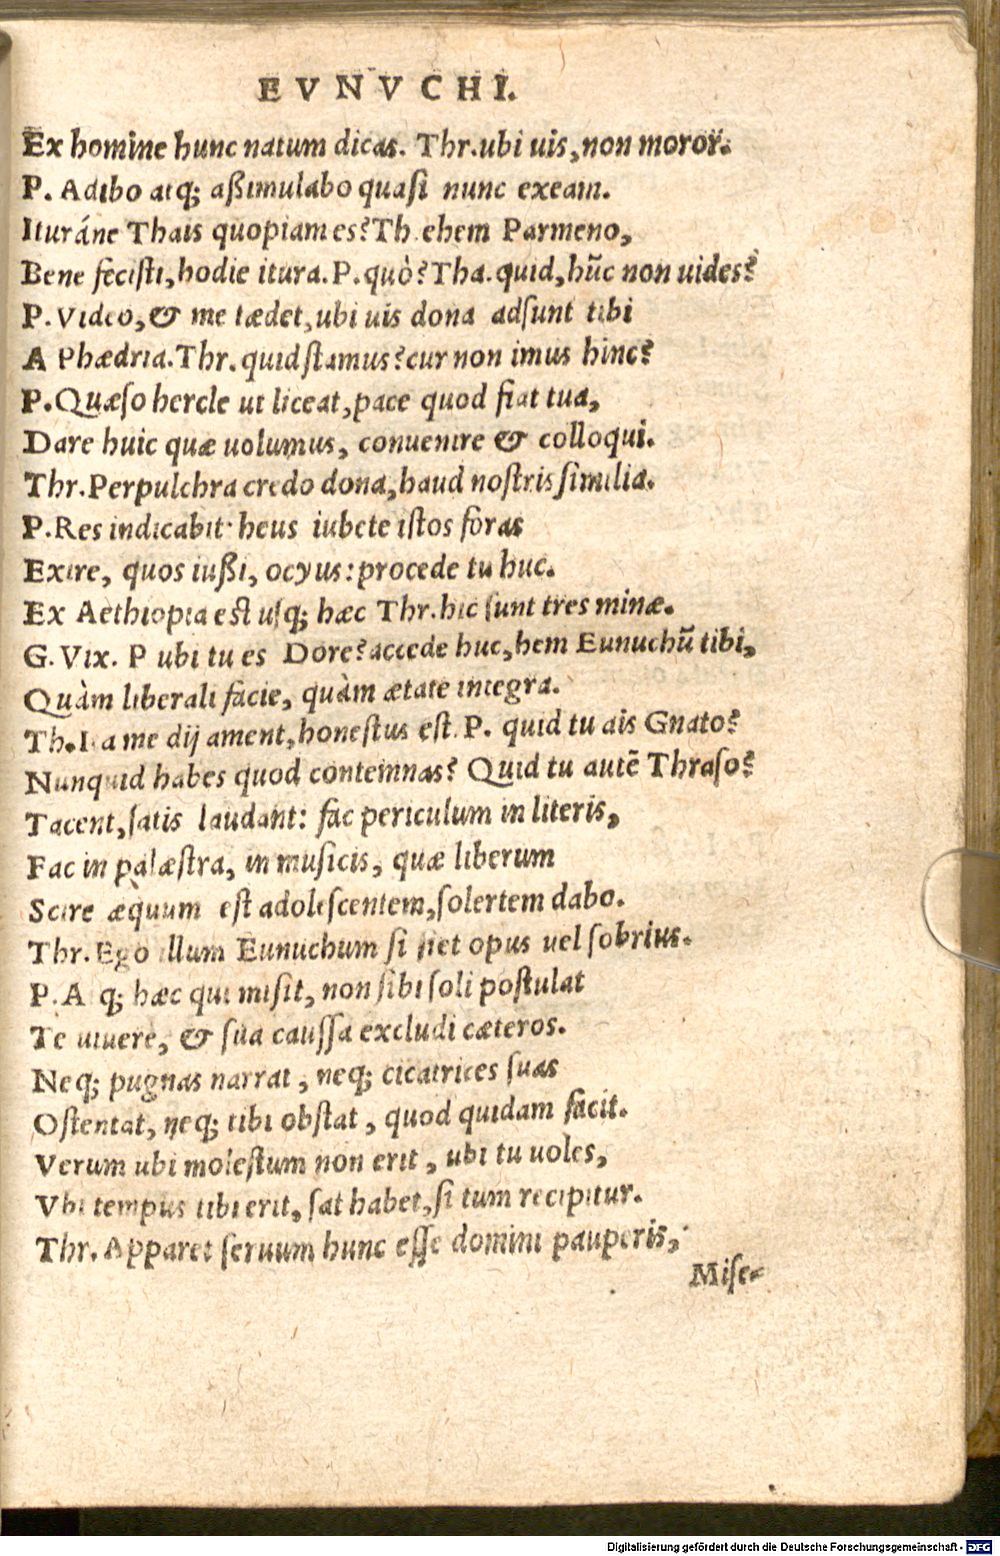 EVNVCHI.
Ex homine hunc natum dicas. Thr. ubi uis, non moror.
P. Adibo atq; aßimulabo quasi nunc exeam.
Ituráne Thais quopiam es? Th. ehem Parmeno,
Bene fecisti, hodie itura. P. quò? Tha. quid, hũc non uides?
P. Video, & me tædet, ubi uis dona adsunt tibi
A Phædria. Thr. quid stamus? cur non imus hinc?
P. Quæso hercle ut liceat, pace quod fiat tua,
Dare huic quæ uolumus, conuenire & colloqui.
Thr. Perpulchra credo dona, haud nostris similia.
P. Res indicabit· heus iubete istos foras
Exire, quos iußi, ocyus: procede tu huc.
Ex Aethiopia est usq; hæc Thr. hic sunt tres minæ.
G. Vix. P ubi tu es Dore? accede huc, hem Eunuchũ tibi,
Quàm liberali facie, quàm ætate integra.
Th. Ita me dij ament, honestus est. P. quid tu ais Gnato?
Nunquid habes quod contemnas? Quid tu autẽ Thraso?
Tacent, satis laudant: fac periculum in literis,
Fac in palæstra, in musicis, quæ liberum
Scire æquum est adolescentem, solertem dabo.
Thr. Ego illum Eunuchum si siet opus uel sobrius.
P. A q; hæc qui misit, non sibi soli postulat
Te uiuere, & sua caussa excludi cæteros.
Neq; pugnas narrat, neq; cicatrices suas
Ostentat, neq; tibi obstat, quod quidam facit.
Verum ubi molestum non erit, ubi tu uoles,
Vbi tempus tibi erit, sat habet, si tum recipitur.
Thr. Apparet seruum hunc esse domini pauperis,
Mise-
Digitalisierung gefördert durch die Deutsche Forschungsgemeinschaft - DFG